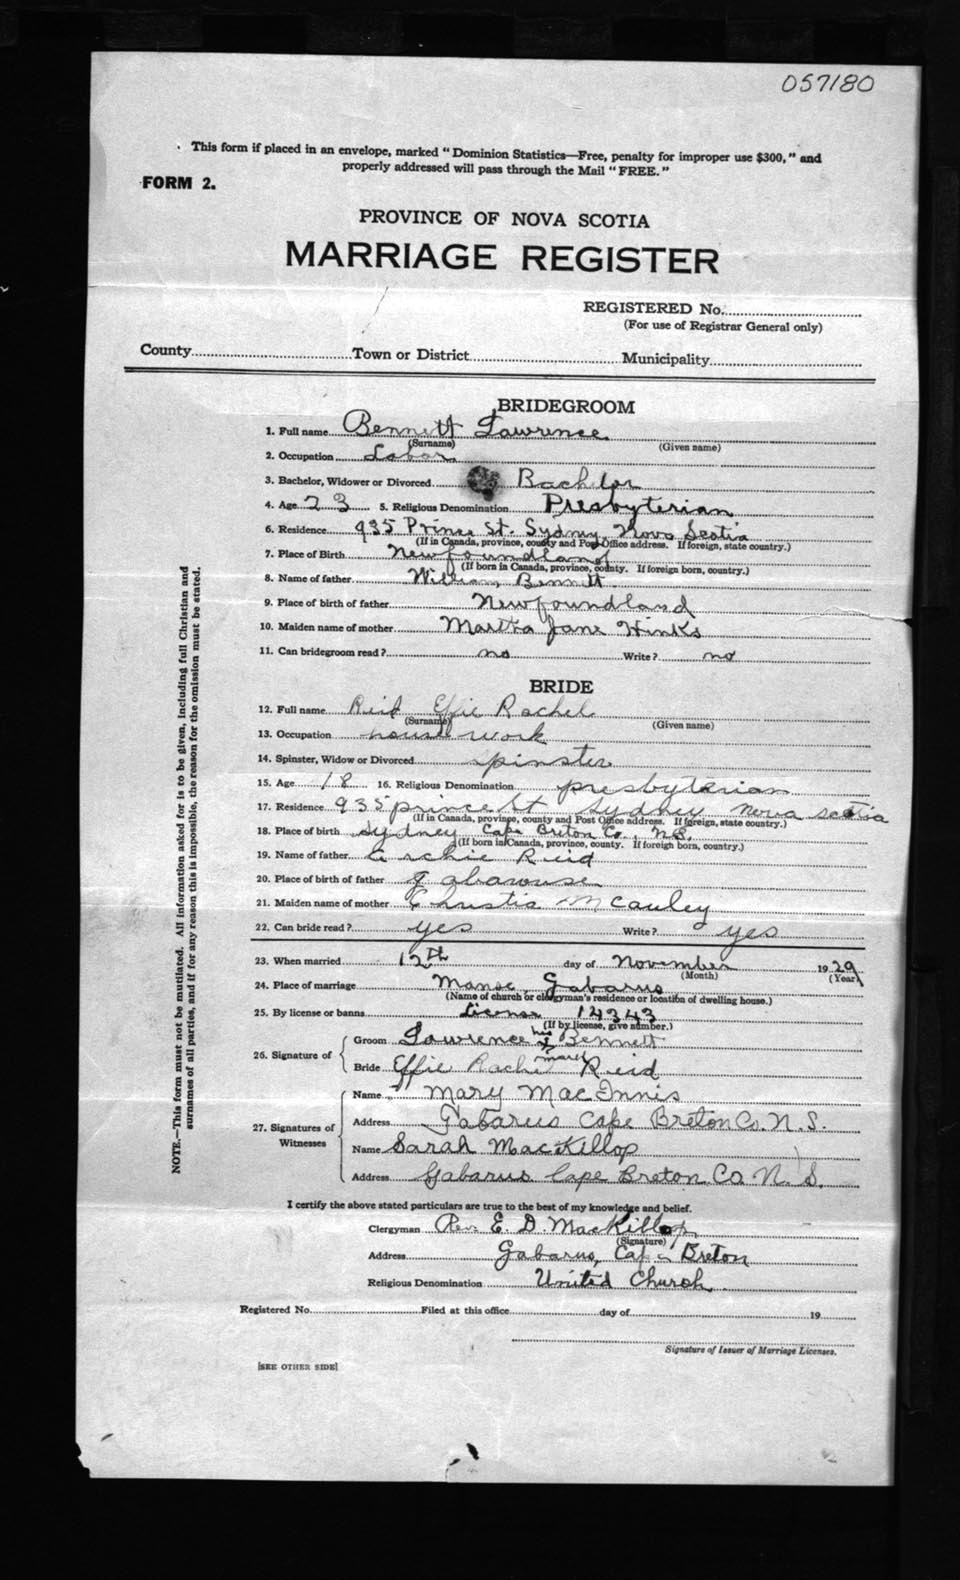 057180
This form if placed in an envelope, marked "Dominion Statistics—Free, penalty for improper use $300," and
properly addressed will pass through the Mail "FREE."
FORM 2.
PROVINCE OF NOVA SCOTIA
MARRIAGE REGISTER
REGISTERED No.
(For use of Registrar General only)
County Town or District Municipality
BRIDEGROOM
1. Full name Bennett Lawrence
(Surname) (Given name)
2. Occupation Labor
3. Bachelor, Widower or Divorced Bachelor
4. Age 23 5. Religious Denomination Presbyterian
6. Residence 935 Prince St. Sydney, Nova Scotia
(If in Canada, province, county and Post Office address. If foreign, state country.)
7. Place of Birth Newfoundland
(If born in Canada, province, county. If foreign born, country.)
8. Name of father William Bennett
9. Place of birth of father Newfoundland
10. Maiden name of mother Martha Jane Hinks
11. Can bridegroom read? no Write? no
BRIDE
12. Full name Reid Effie Rachel
(Surname) (Given name)
13. Occupation house work
14. Spinster, Widow or Divorced spinster
15. Age 18 16. Religious Denomination presbyterian
17. Residence 935 prince St Sydney nova scotia
(If in Canada, province, county and Post Office address. If foreign, state country.)
18. Place of birth Sydney Cape Breton Co, N.S.
(If born in Canada, province, county. If foreign born, country.)
19. Name of father Archie Reid
20. Place of birth of father gabarouse
21. Maiden name of mother Christie McCauley
22. Can bride read? yes Write? yes
23. When married 12th day of November 1929
(Month) (Year)
24. Place of marriage Manse, Gabarus
(Name of church or clergyman's residence or location of dwelling house.)
25. By license or banns License 14343
(If by license, give number.)
26. Signature of
Groom Lawrence his x Bennett
mark
Bride Effie Rachel Reid
27. Signatures of Witnesses
Name Mary MacInnis
Address Gabarus Cape Breton Co. N.S.
Name Sarah MacKillop
Address Gabarus Cape Breton Co N.S.
I certify the above stated particulars are true to the best of my knowledge and belief.
Clergyman Rev. E. D. MacKillop
(Signature)
Address Gabarus, Cape Breton
Religious Denomination United Church
Registered No. Filed at this office day of 19
Signature of Issuer of Marriage Licenses.
[SEE OTHER SIDE]
NOTE.—This form must not be mutilated. All information asked for is to be given, including full Christian and
surnames of all parties, and if for any reason this is impossible, the reason for the omission must be stated.